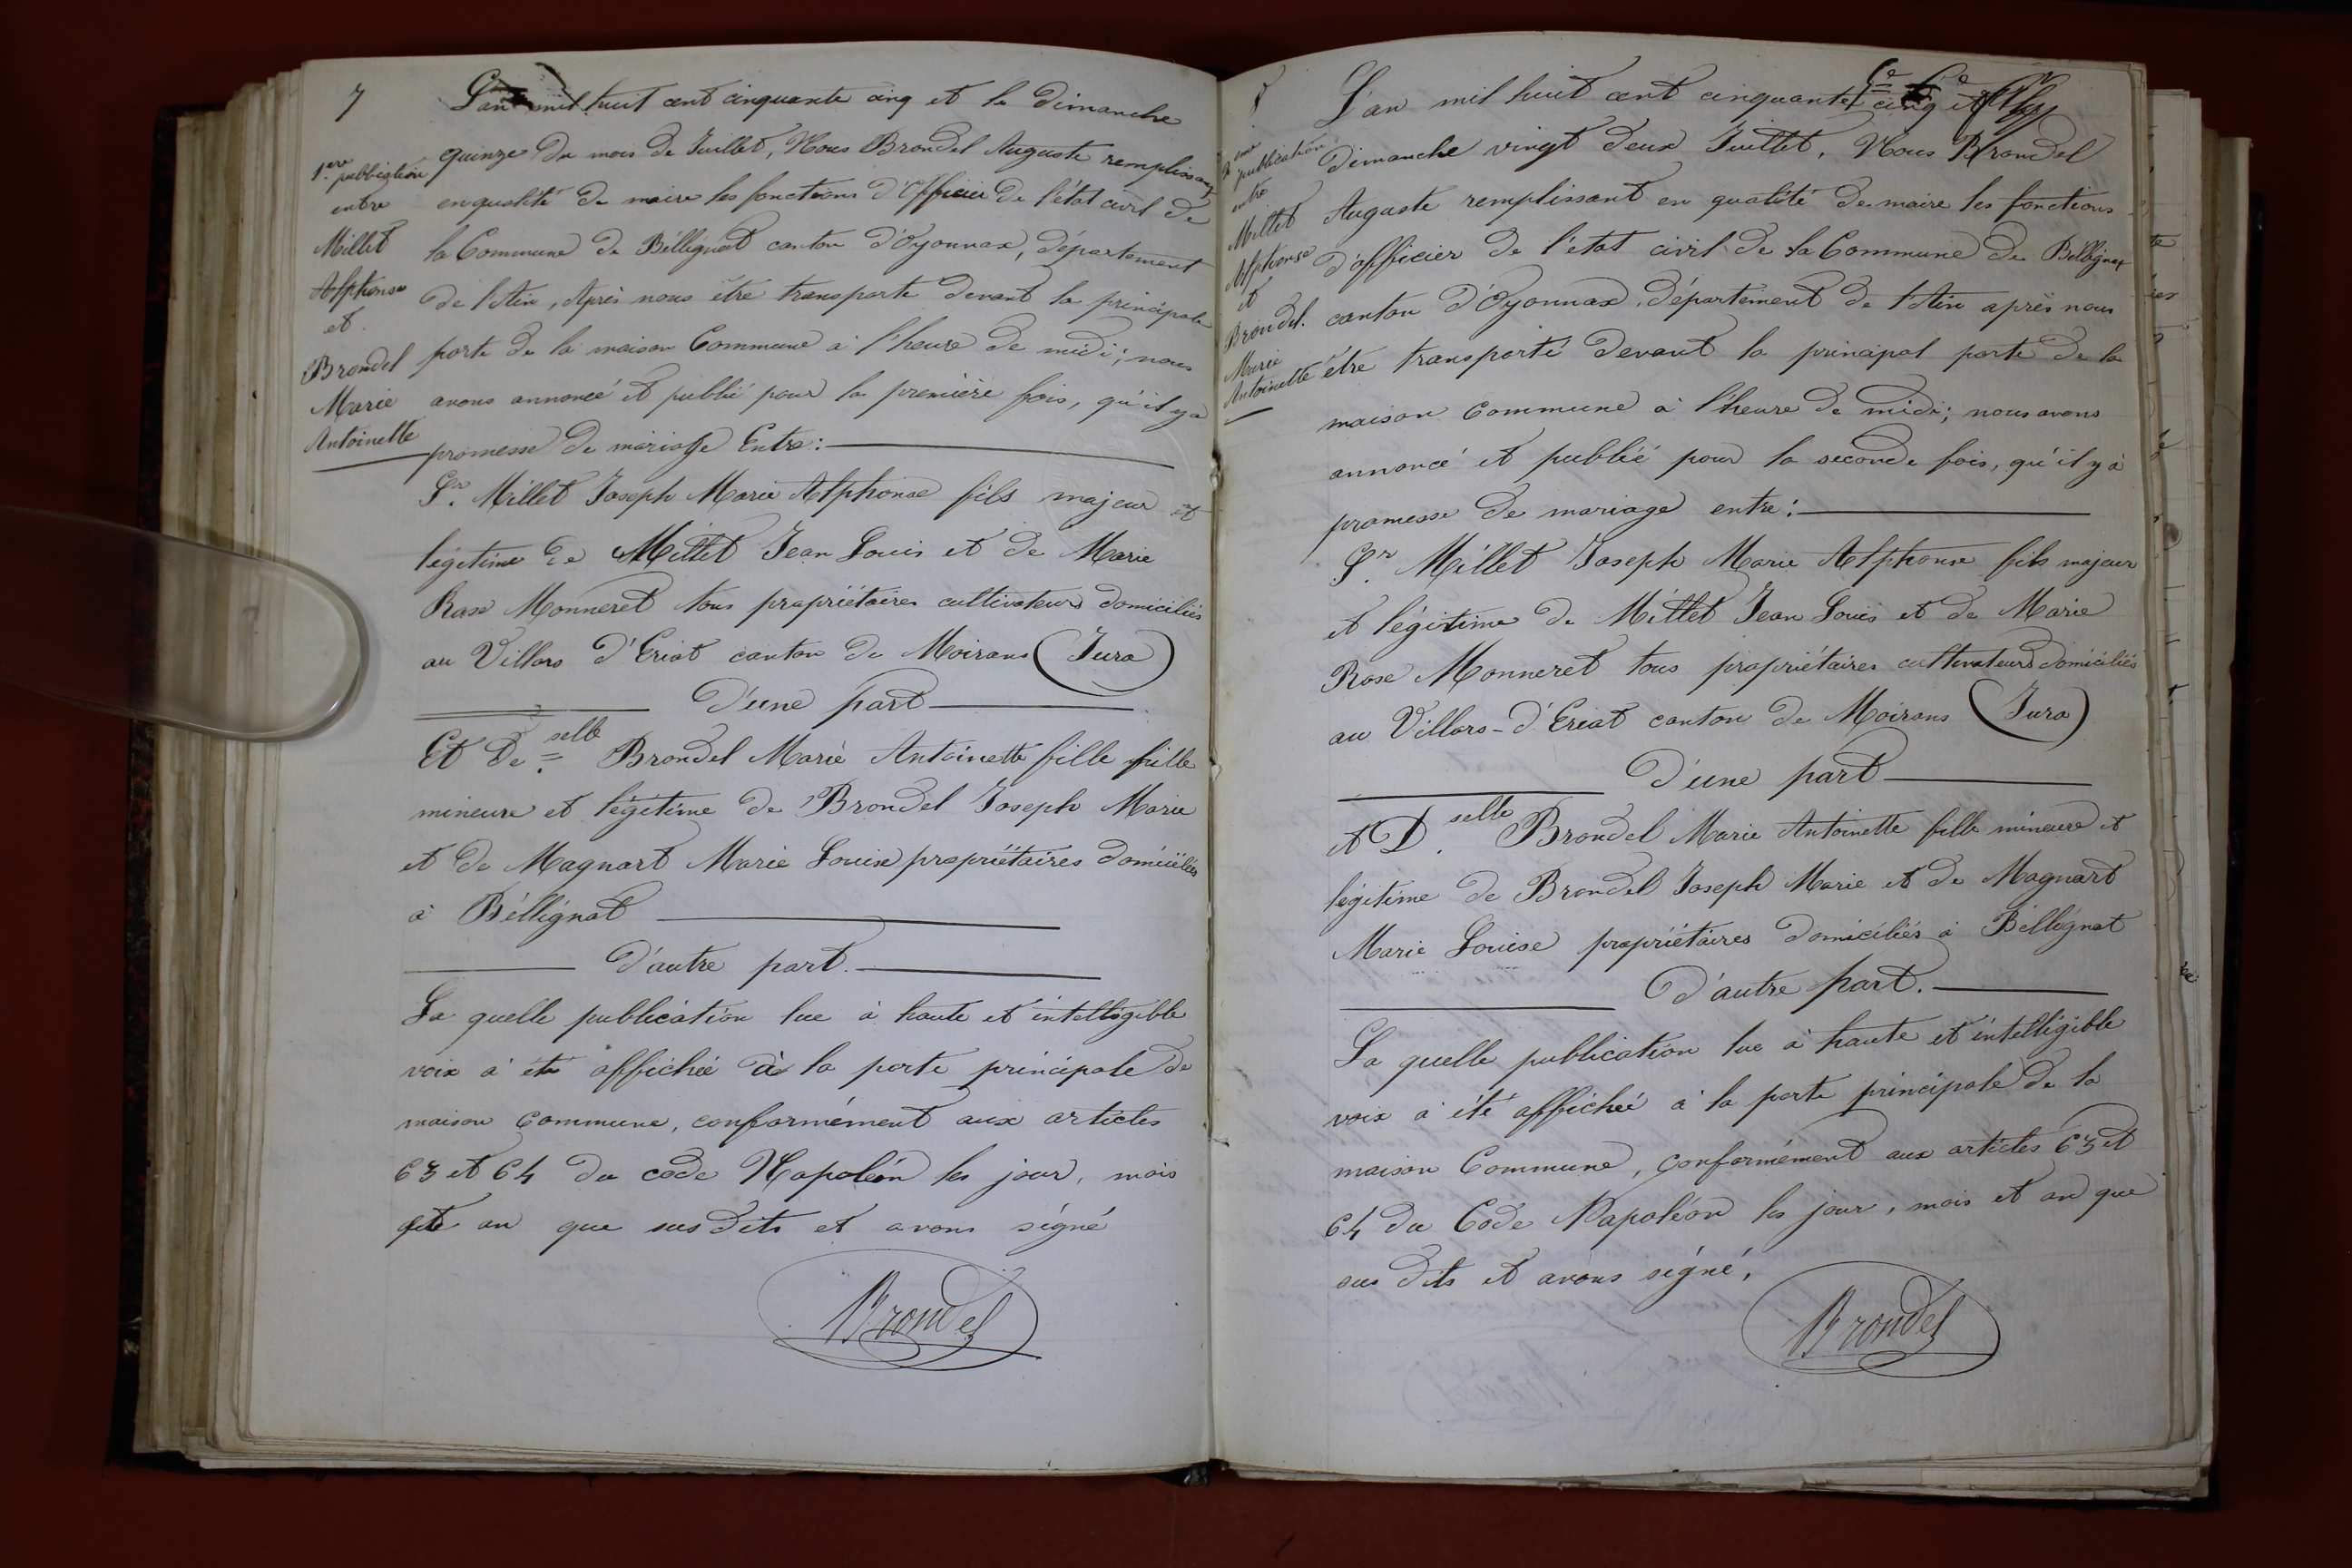 7
1.ere publication
entre
Millet
Alphonse
et
Brondel
Marie
Antoinette
L'an mil huit cent cinquante cinq et le dimanche
quinze du mois de Juillet, Nous Brondel Auguste remplissant
en qualité de maire les fonctions d'Officier de l'état civil de
la Commune de Béllignat canton d'Oyonnax, département
de l'Ain, Après nous être transporte devant la principale
porte de la maison Commune à l'heure de midi; nous
avons annoncé et publié pour la première fois, qu'il y a
promesse de mariage Entre:
Sr. Millet Joseph Marie Alphonse fils majeur et
légitime de Millet Jean Louis et de Marie
Rose Monneret tous propriétaires cultivateurs domiciliés
au Villars d'Eriat canton de Moirans (Jura)
D'une part
Et De.selle Brondel Marie Antoinette fille fille
mineure et légitime de Brondel Joseph Marie
et de Magnart Marie Louise propriétaires domiciliés
à Béllignat
D'autre part.
La quelle publication lue à haute et intelligible
voix à été affichée à la porte principale de
maison Commune, conformément aux articles
63 et 64 du code Napoléon les jour, mois
et an que sus dits et avons signé
Brondel
8
2eme publication
entre
Millet
Alphonse
et
Brondel.
Marie
Antoinette
L'an mil huit cent cinquante cinq et
dimanche vingt deux Juillet, Nous Brondel
Auguste remplissant en qualité de maire les fonctions
d'officier de l'état civil de la Commune de Béllignat
canton d'Oyonnax, département de l'Ain après nous
être transporté devant la principal porte de la
maison commune à l'heure de midi; nous avons
annoncé et publié pour la seconde fois, qu'il y à
promesse de mariage entre:
Sr. Millet Joseph Marie Alphonse fils majeur
et légitime de Millet Jean Louis et de Marie
Rose Monneret tous propriétaires cultivateurs domiciliés
au Villars-d'Eriat canton de Moirans (Jura)
D'une part
et D.selle Brondel Marie Antoinette fille mineure et
légitime de Brondel Joseph Marie et de Magnart
Marie Louise propriétaires domiciliés à Béllignat
D'autre part.
La quelle publication lue à haute et intelligible
voix à été affichée à la porte principale de la
maison Commune, conformément aux articles 63 et
64 du Code Napoléon les jour, mois et an que
sus dits et avons signé,
Brondel